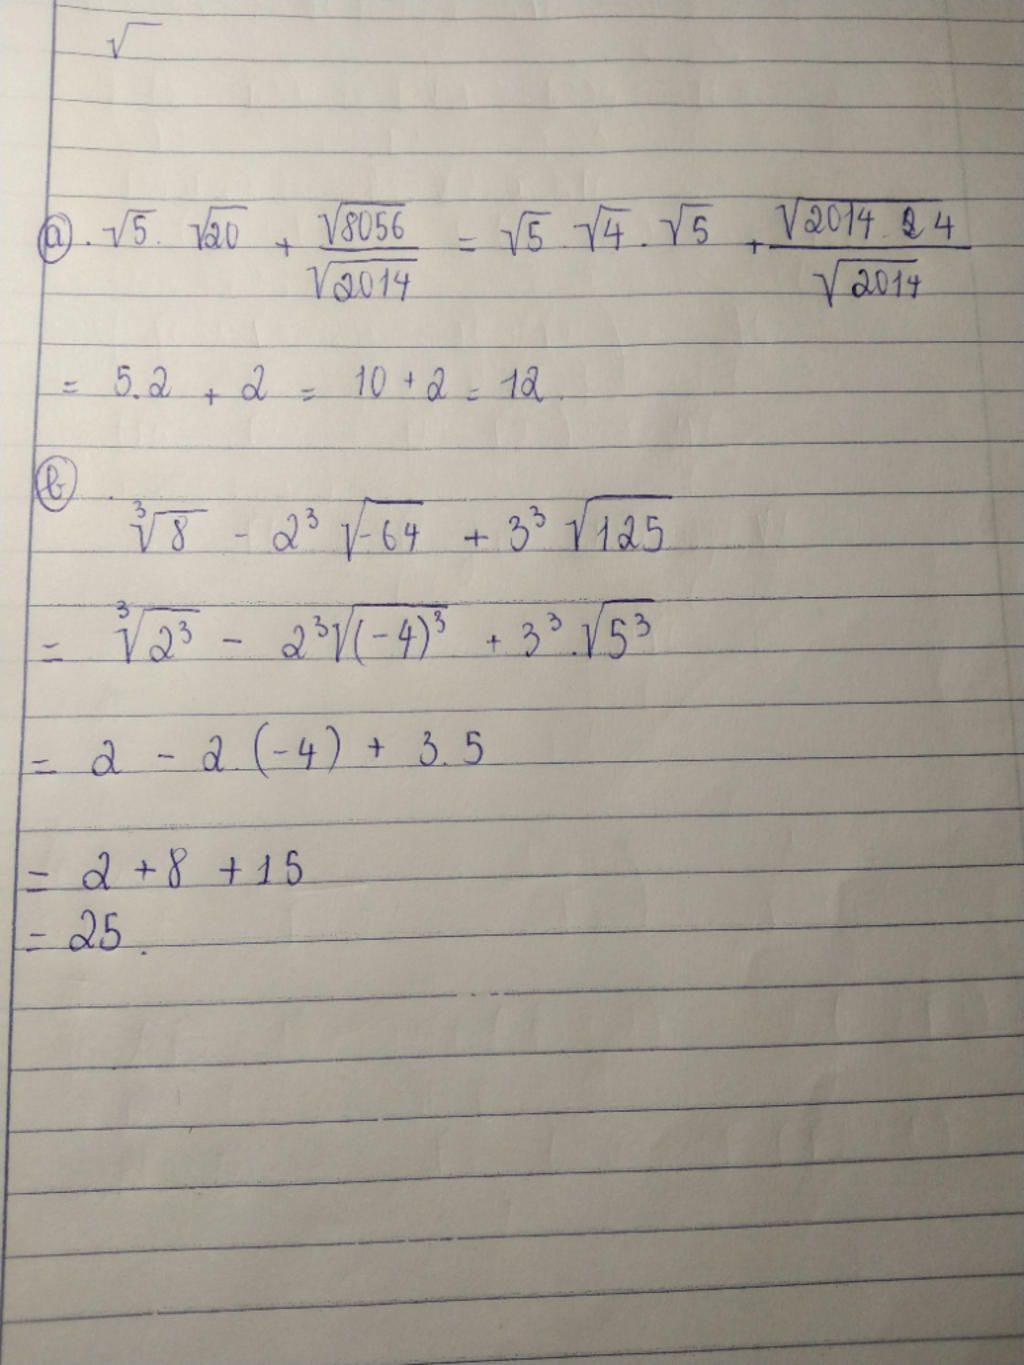 √
ⓐ. √5. √20 + √8056/√2014 = √5 √4 . √5 + √2014 . 4/√2014
= 5.2 + 2 = 10 + 2 = 12.
ⓑ
³√8 - 2³ √-64 + 3³ √125
= ³√2³ - 2³√(-4)³ + 3³.√5³
= 2 - 2.(-4) + 3.5
= 2 + 8 + 15
= 25.